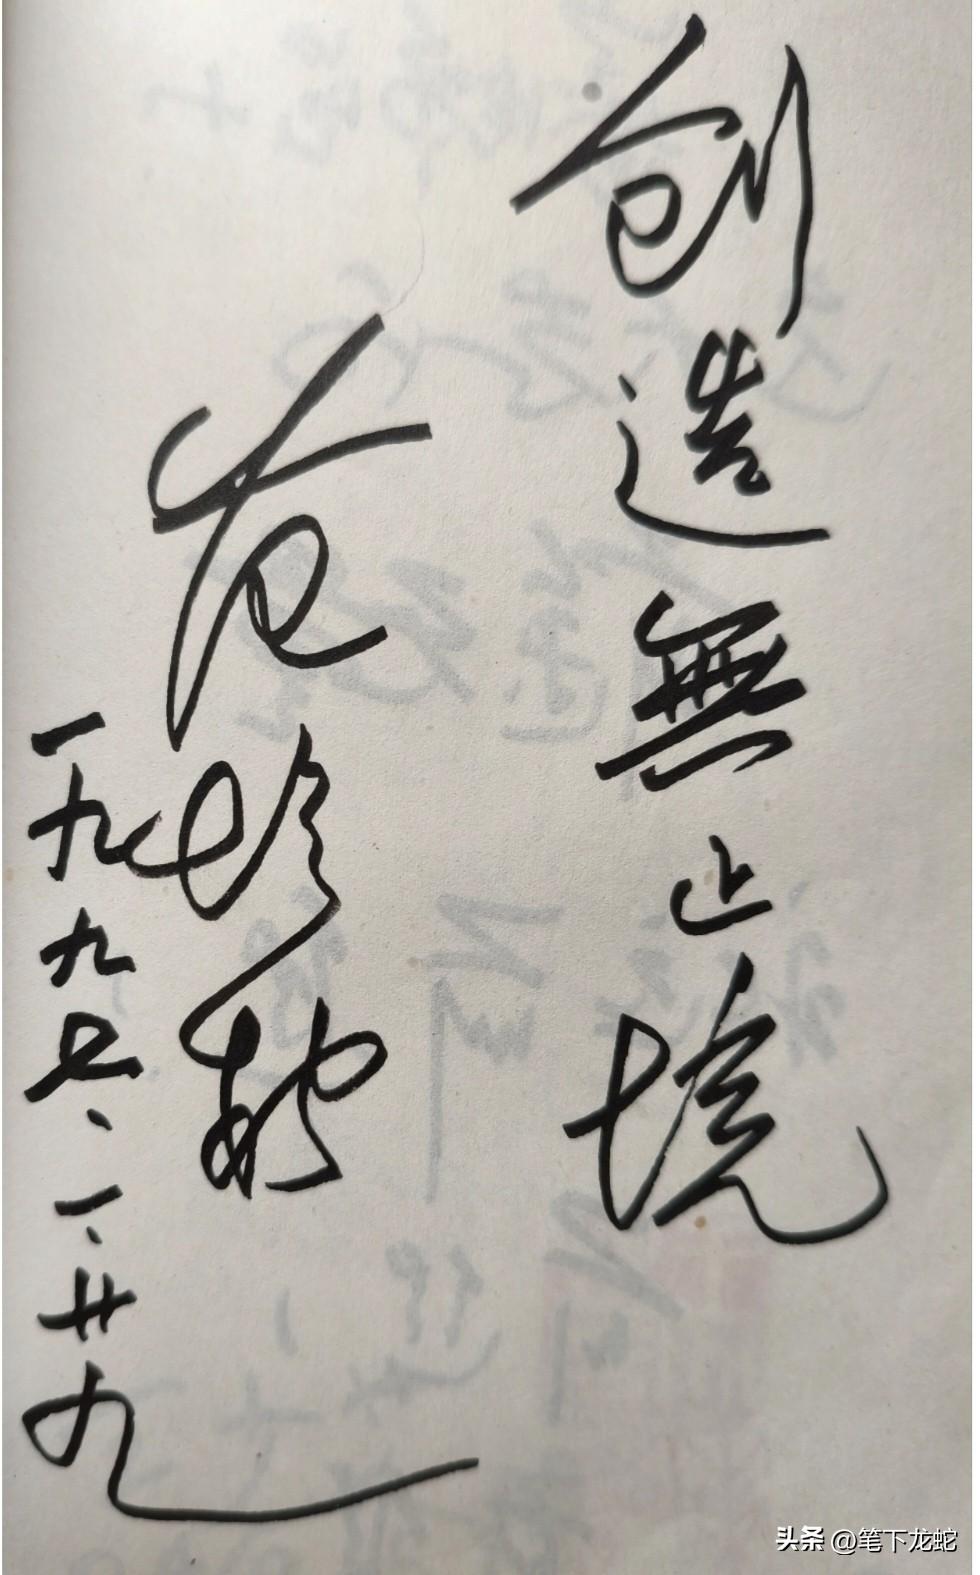 创造無止境
一九九、一、廿九
头条 @笔下龙蛇